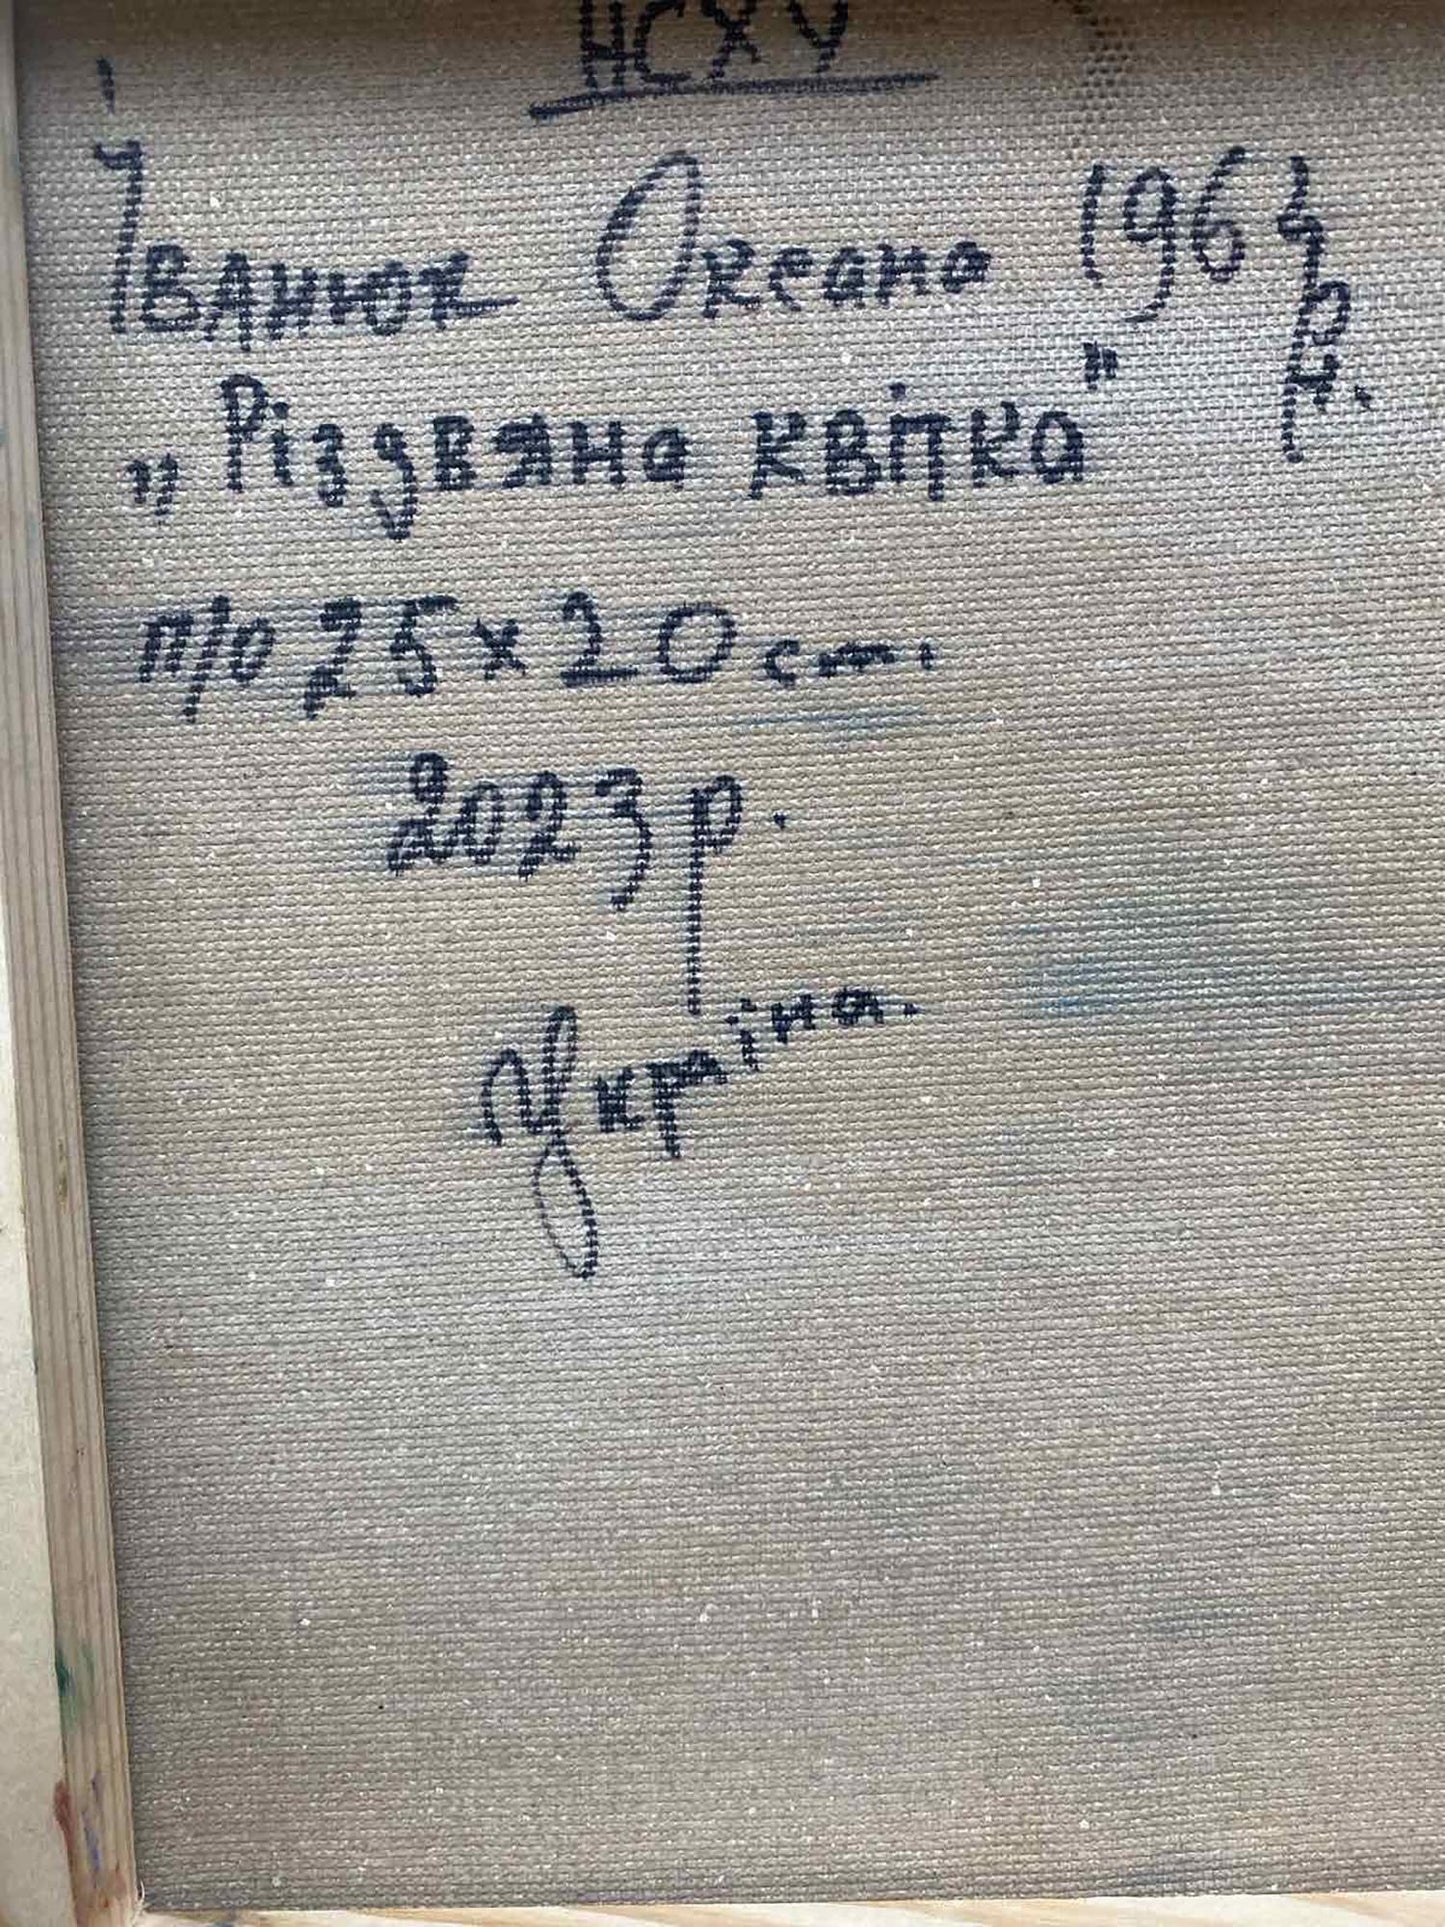 НСХУ
Іванюк Оксана 1964 р.н.
„Різдвяна квітка"
п/о 25×20 cm.
2023 р.
Україна.